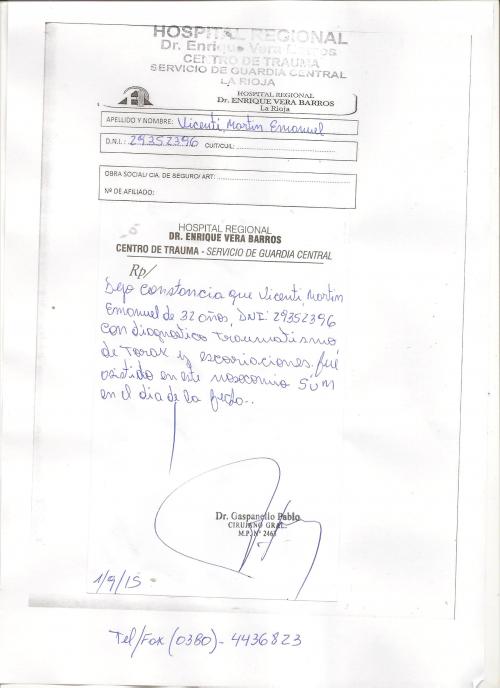 HOSPITAL REGIONAL
Dr. Enrique Vera Barros
CENTRO DE TRAUMA
SERVICIO DE GUARDIA CENTRAL
LA RIOJA
HOSPITAL REGIONAL
Dr. ENRIQUE VERA BARROS
La Rioja
APELLIDO Y NOMBRE: Vicenti, Martin Emanuel
D.N.I.: 29352396 CUIT/CUIL:
OBRA SOCIAL/ CIA. DE SEGURO/ ART:
Nº DE AFILIADO:
HOSPITAL REGIONAL
DR. ENRIQUE VERA BARROS
CENTRO DE TRAUMA - SERVICIO DE GUARDIA CENTRAL
Rp/
Dejo constancia que Vicenti, Martin
Emanuel de 32 años, DNI: 29352396
con diagnostico traumatismo
de Torax y escoriaciones. fué
asistido en este nosocomio SUM
en el dia de la fecha..
Dr. Gaspanello Pablo
CIRUJANO GRAL.
M.P. Nº 2463
1/9/15
Tel/Fax (0380)- 4436823